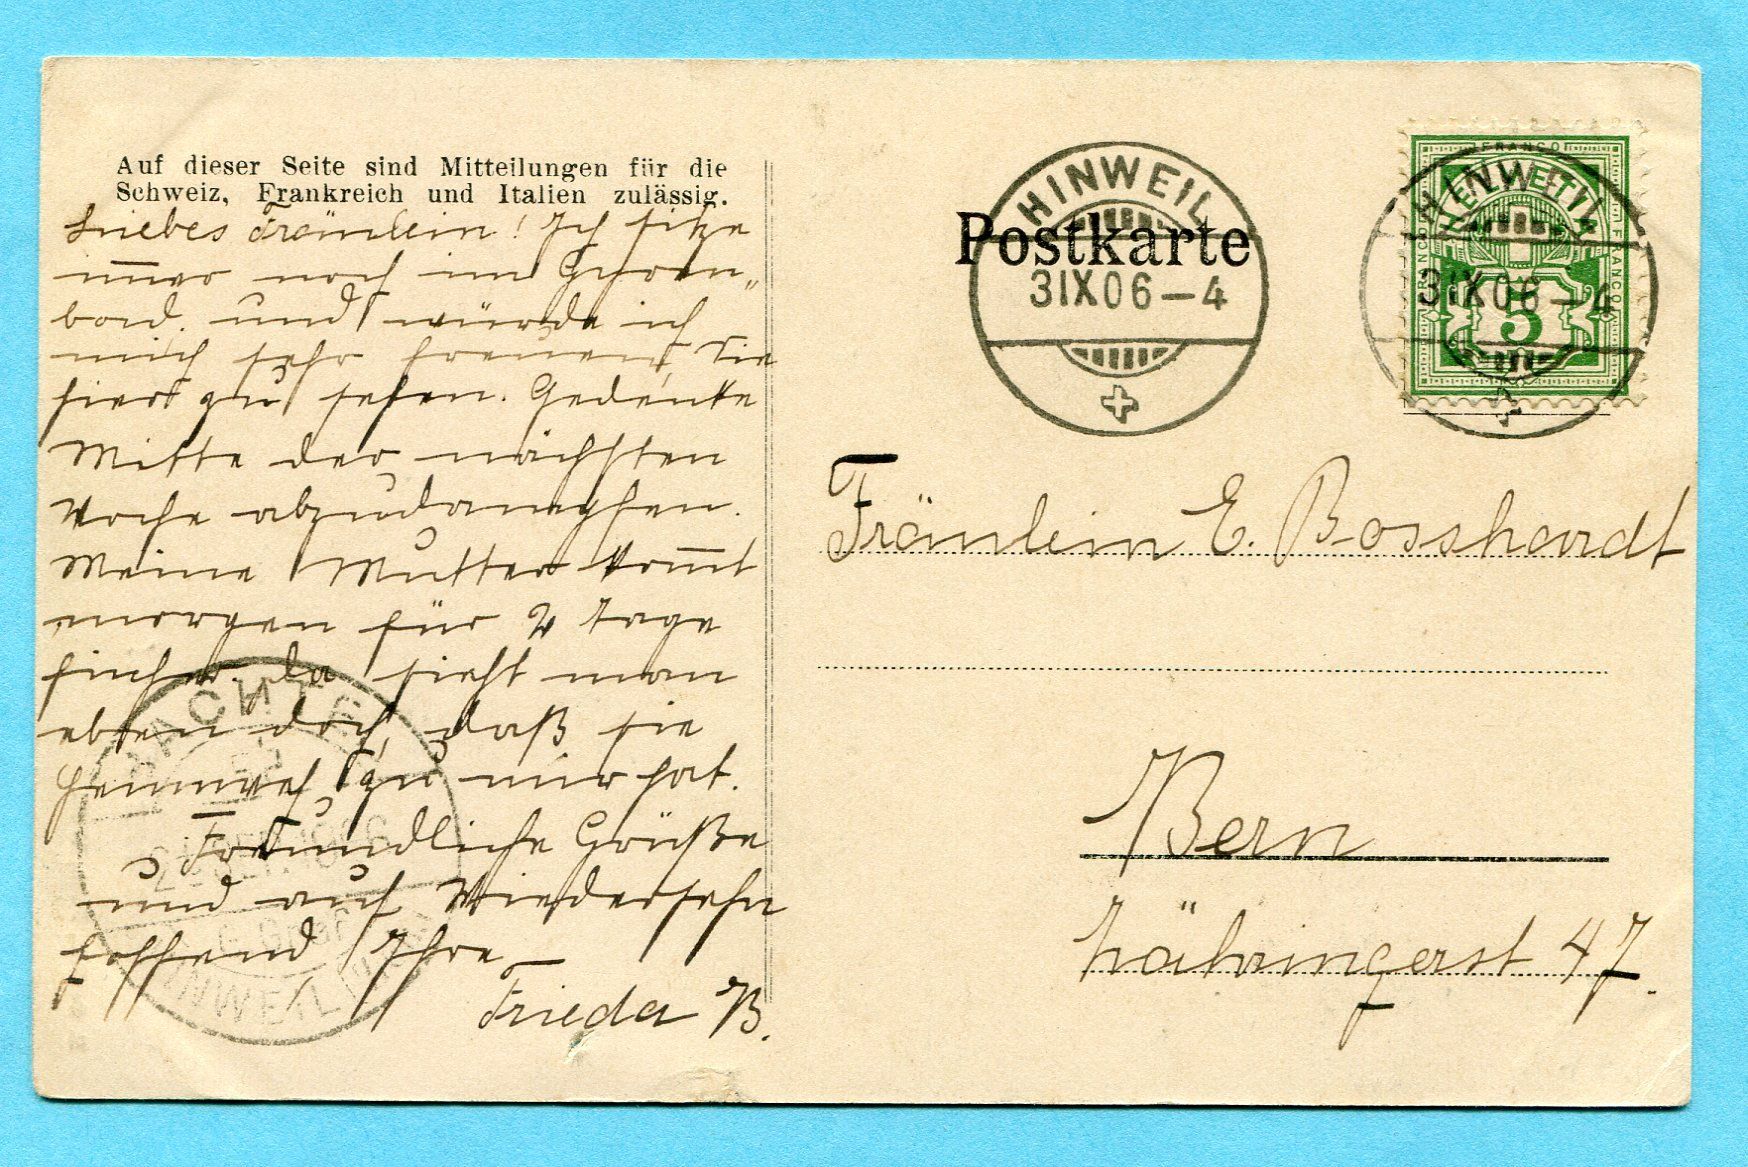 Auf dieser Seite sind Mitteilungen für die
Schweiz, Frankreich und Italien zulässig.
Liebes Fräulein! Ich sitze
immer noch im Gyren„
bad. und würde ich
mich sehr freuen, Sie
hier zu sehen. Gedenke
Mitte der nächsten
Woche abzudampfen.
Meine Mutter kommt
morgen für 2 Tage
hieher. da sieht man
eben doch, daß sie
Heimweh zu mir hat.
Freundliche Grüße
und auf Wiedersehn
hoffend, Ihre
Frieda B.
BACHTEL
HINWEIL
Postkarte
HINWEIL
3 IX 06 – 4
FRANCO
HELVETIA
FRANCO
FRANCO
5
HINWEIL
3 IX 06 – 4
Fräulein E. Bosshardt
Bern
Zähringerst 47.